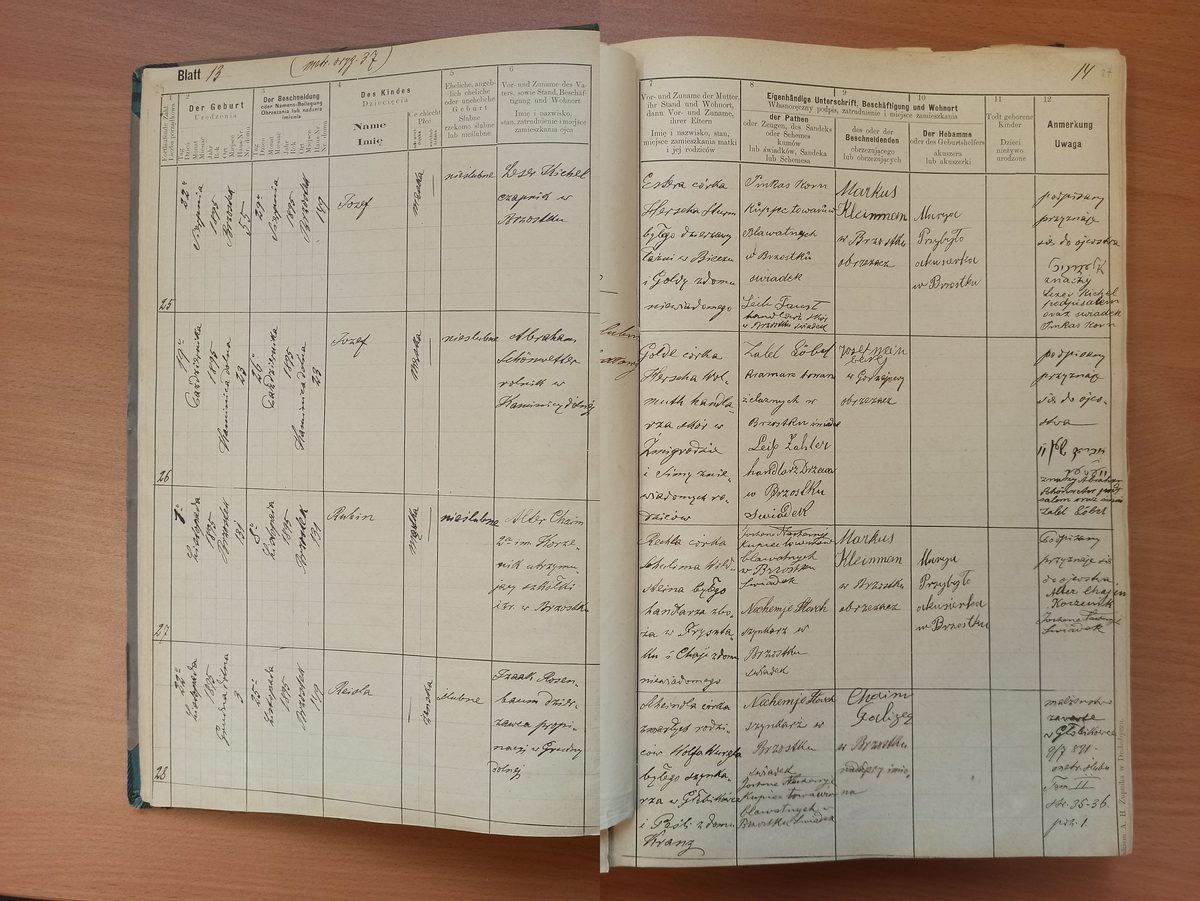 Blatt 13
(metr. oryg. 37)
1
2
3
4
5
6
Fortlaufende Zahl
Liczba porządkowa
Der Geburt
Urodzenia
Tag
Dzień
Monat
Miesiąc
Jahr
Rok
Ort
Miejsce
Haus-Nr.
Nr. domu
Der Beschneidung
oder Namens-Beilegung
Obrzezania lub nadania
imienia
Tag
Dzień
Monat
Miesiąc
Jahr
Rok
Ort
Miejsce
Haus-Nr.
Nr. domu
Des Kindes
Dziecięcia
Name
Imię
Geschlecht
Płeć
Eheliche, angeb-
lich eheliche
oder uneheliche
Geburt
Ślubne
rzekomo ślubne
lub nieślubne
Vor- und Zuname des Va-
ters, sowie Stand, Beschäf-
tigung und Wohnort
Imię i nazwisko,
stan, zatrudnienie i miejsce
zamieszkania ojca
25
22º
Sierpnia
1895
Brzostek
55
29º
Sierpnia
1895
Brzostek
197
Jozef
męska
nieślubne
Leser Kichel
czapnik w
Brzostku
26
19º
Października
1895
Kamienica dolna
23
26º
Października
1895
Kamienica dolna
23
Jozef
męska
nieślubne
Abraham
Schönwetter
rolnik w
Kamienicy dolnej
27
1º
Listopada
1895
Brzostek
191
8º
Listopada
1895
Brzostek
191
Rubin
męska
nieślubne
Alter Chaim
2ga im. Korze-
nik utrzymu-
jący szkółkę
izr. w Brzostku
28
22º
Listopada
1895
Grudna dolna
3
25º
Listopada
1895
Brzostek
179
Reisla
żenska
ślubne
Izaak Rosen-
baum dzier-
żawca propi-
nacyi w Grudny
dolnej
14
7
8
9
10
11
12
Vor- und Zuname der Mutter,
ihr Stand und Wohnort,
dann Vor- und Zuname,
ihrer Eltern
Imię i nazwisko, stan,
miejsce zamieszkania matki
i jej rodziców
Eigenhändige Unterschrift, Beschäftigung und Wohnort
Własnoręczny podpis, zatrudnienie i miejsce zamieszkania
der Pathen
oder Zeugen, des Sandeks
oder Schemes
kumów
lub świadków, Sandeka
lub Schemesa
des oder der
Beschneidenden
obrzezującego
lub obrzezujących
Der Hebamme
oder des Geburtshelfers
akuszera
lub akuszerki
Todt geborene
Kinder
Dzieci
nieżywo
urodzone
Anmerkung
Uwaga
Estera córka
Herscha Sturm
byłego dzierżawcy
łaźni w Bieczu
i Goldy zdomu
niewiadomego
Pinkas Korn
Kupiec towarów
Bławatnych
w Brzostku
swiadek
Leib Faust
handlarz skór
w Brzostku swiadek
Markus
Kleinman
w Brzostku
obrzezacz
Marya
Przybyło
akusierka
w Brzostku
podpisany
przyznaję
się do ojcostwa
znaczy
Leser Kichel
podpisałem
oraz swiadek
Pinkas Korn
Golde córka
Herscha Wol-
muth handla-
rza skór w
Żmigrodzie
i Simy znie-
wiadomych ro-
dziców
Zalel Löbel
Kramarz towarów
żelaznych w
Brzostku świadek
Leib Zahler
handlarz Drzewa
w Brzostku
Swiadek
Jozef Wein
berg
w Gorzejowy
obrzezacz
podpisany
przyznaję
się do ojco-
stwa
znaczy Abraham
Schönwetter
Zalel Löbel
Rechla córka
Schulima Wild-
steina byłego
handarza zbo-
ża w Fryszta-
ku i Chaje zdomu
niewiadomego
Kupiec towarów
bławatnych
w Brzostku
Swiadek
Nechemje Storch
szynkarz w
Brzostku
swiadek
Markus
Kleinman
w Brzostku
obrzezacz
Marya
Przybyło
akusierka
w Brzostku
Podpisany
przyznaje się
do ojcostwa
Alter Chajem
Korzenik
Swiadek
Scheindla córka
zmarłych rodzi-
ców Wolfa Kurza
byłego szynka-
rza w Głobikówce
i Pesli z domu
Kranz
Nechemje Storch
szynkarz w
Brzostku
swiadek
Kupiec towarów
bławatnych w
Brzostku Swiadek
Chaim
Galizer
w Brzostku
nadający imio-
na
małżenstwo
zawarte
w Głobikówce
9/7 871
metr. ślubu
Tom II
str. 35-36
poz. 1